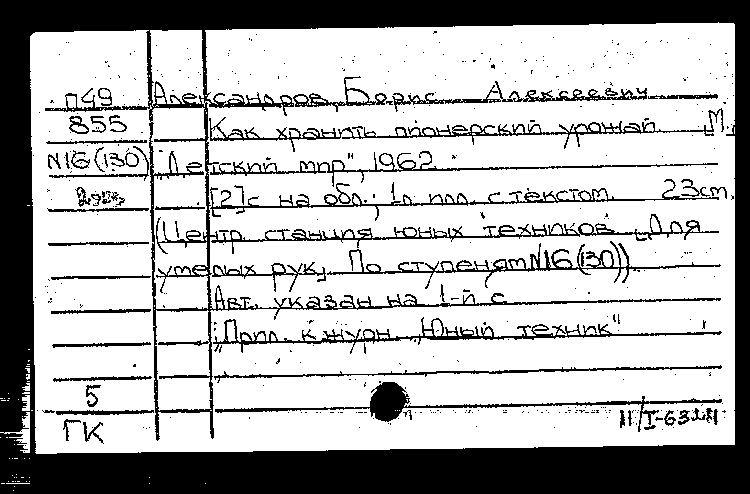 П49 Александров, Борис Алексеевич
855 Как хранить пионерский урожай „М.,
N16(130) „Детский мир", 1962
2экз [2]с на обл.; 1л илл. с текстом. 23см.
(Центр. станция юных техников „Для
умелых рук„ По ступеням N16(130))
Авт. указан на 1-й с
„Прил. к журн. „Юный техник"
5
ГК